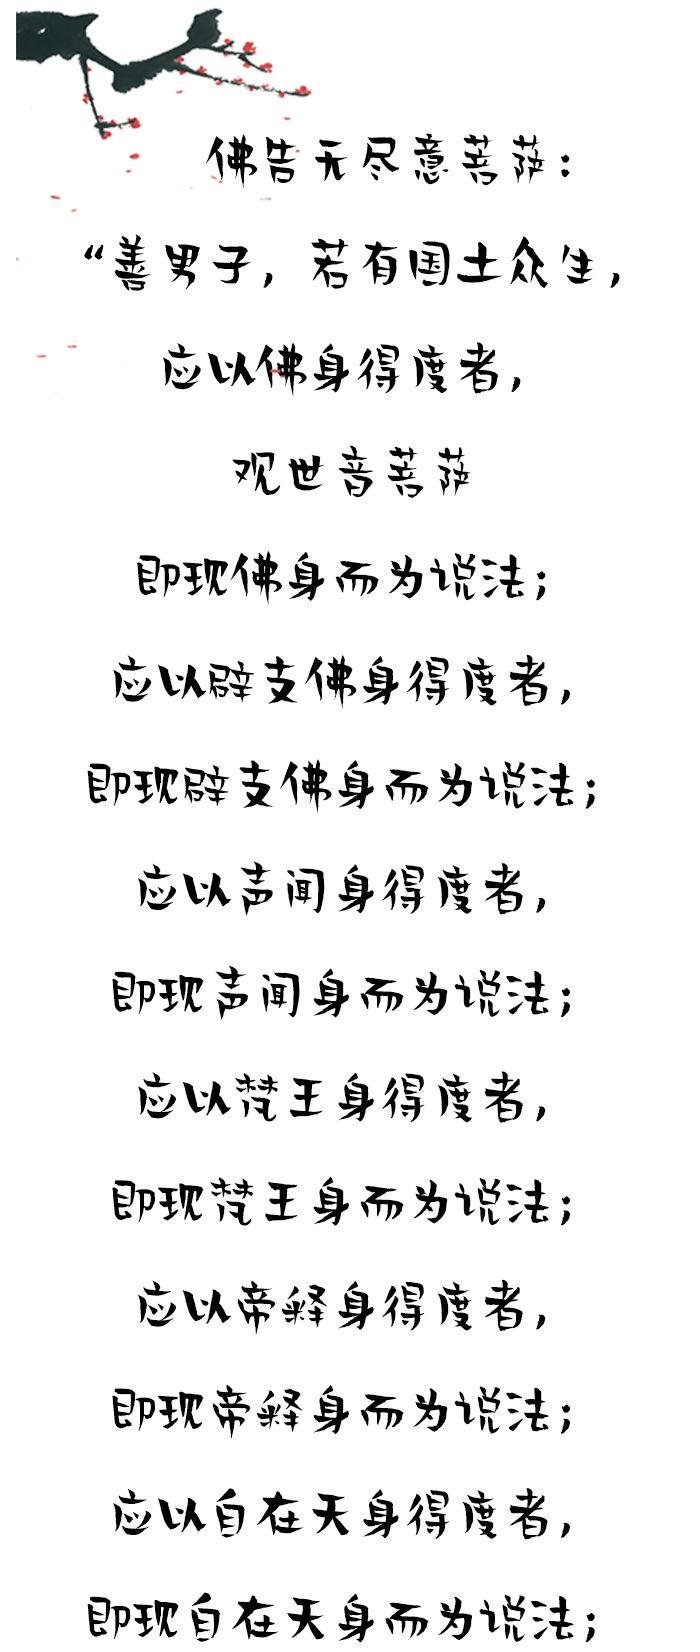 佛告无尽意菩萨：
“善男子，若有国土众生，
应以佛身得度者，
观世音菩萨
即现佛身而为说法；
应以辟支佛身得度者，
即现辟支佛身而为说法；
应以声闻身得度者，
即现声闻身而为说法；
应以梵王身得度者，
即现梵王身而为说法；
应以帝释身得度者，
即现帝释身而为说法；
应以自在天身得度者，
即现自在天身而为说法；